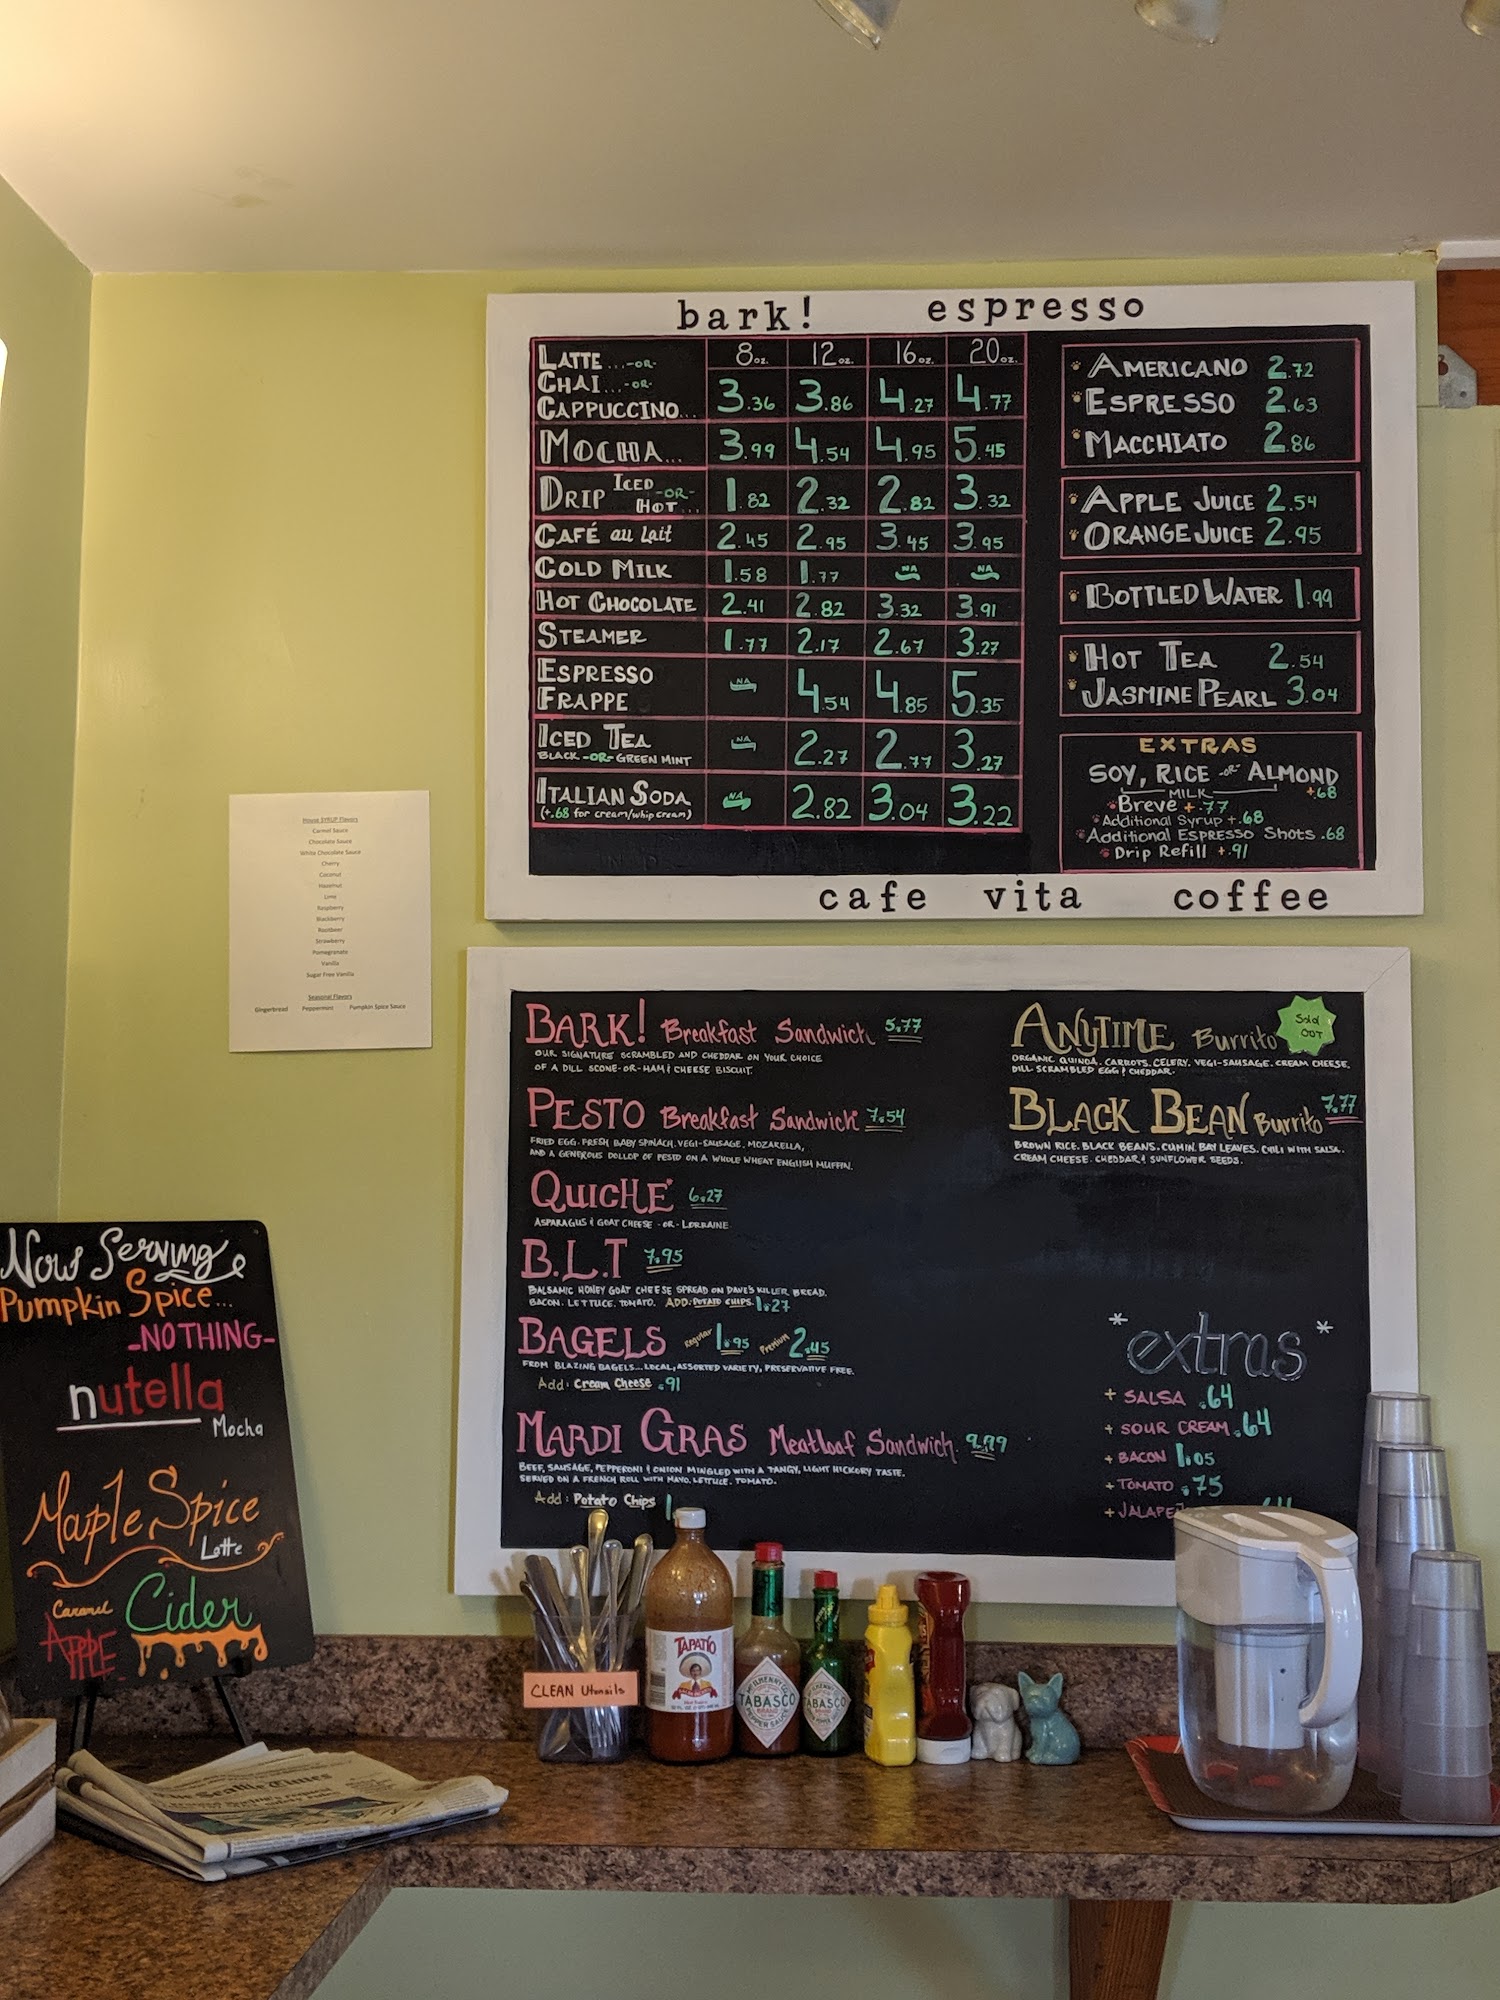 bark! espresso
LATTE...-OR- 8oz. 12oz. 16oz. 20oz.
CHAI...-OR-
CAPPUCCINO... 3.36 3.86 4.27 4.77
MOCHA... 3.99 4.54 4.95 5.45
DRIP ICED -OR- HOT... 1.82 2.32 2.82 3.32
CAFÉ au lait 2.45 2.95 3.45 3.95
COLD MILK 1.58 1.77 NA NA
HOT CHOCOLATE 2.41 2.82 3.32 3.91
STEAMER 1.77 2.17 2.67 3.27
ESPRESSO
FRAPPE NA 4.54 4.85 5.35
ICED TEA NA 2.27 2.77 3.27
BLACK -OR- GREEN MINT
ITALIAN SODA NA 2.82 3.04 3.22
(+.68 for cream/whip cream)
AMERICANO 2.72
ESPRESSO 2.63
MACCHIATO 2.86
APPLE JUICE 2.54
ORANGE JUICE 2.95
BOTTLED WATER 1.99
HOT TEA 2.54
JASMINE PEARL 3.04
EXTRAS
SOY, RICE -OR- ALMOND
MILK +.68
Breve +.77
Additional Syrup +.68
Additional ESPRESSO Shots .68
Drip Refill +.91
cafe vita coffee
House SYRUP Flavors
Carmel Sauce
Chocolate Sauce
White Chocolate Sauce
Cherry
Coconut
Hazelnut
Lime
Raspberry
Blackberry
Rootbeer
Strawberry
Pomegranate
Vanilla
Sugar Free Vanilla
Seasonal Flavors
Gingerbread Peppermint Pumpkin Spice Sauce
BARK! Breakfast Sandwich 5.77
OUR SIGNATURE SCRAMBLED AND CHEDDAR ON YOUR CHOICE
OF A DILL SCONE-OR-HAM & CHEESE BISCUIT.
PESTO Breakfast Sandwich 7.54
FRIED EGG, FRESH BABY SPINACH, VEGI-SAUSAGE, MOZARELLA,
AND A GENEROUS DOLLOP OF PESTO ON A WHOLE WHEAT ENGLISH MUFFIN.
QUICHE 6.27
ASPARAGUS & GOAT CHEESE -OR- LORRAINE
B.L.T 7.95
BALSAMIC HONEY GOAT CHEESE SPREAD ON DAVE'S KILLER BREAD.
BACON. LETTUCE. TOMATO. ADD: POTATO CHIPS. 1.27
BAGELS Regular 1.95 Premium 2.45
FROM BLAZING BAGELS...LOCAL, ASSORTED VARIETY, PRESERVATIVE FREE.
Add: Cream Cheese .91
MARDI GRAS Meatloaf Sandwich. 9.99
BEEF, SAUSAGE, PEPPERONI & ONION MINGLED WITH A TANGY, LIGHT HICKORY TASTE.
SERVED ON A FRENCH ROLL WITH MAYO, LETTUCE, TOMATO.
Add: Potato Chips 1
ANYTIME Burrito Sold OUT
ORGANIC QUINOA, CARROTS, CELERY, VEGI-SAUSAGE, CREAM CHEESE,
DILL SCRAMBLED EGG & CHEDDAR.
BLACK BEAN Burrito 7.77
BROWN RICE, BLACK BEANS, CUMIN, BAY LEAVES, CHILI WITH SALSA,
CREAM CHEESE, CHEDDAR & SUNFLOWER SEEDS.
*extras*
+ SALSA .64
+ SOUR CREAM .64
+ BACON 1.05
+ TOMATO .75
+ JALAPE
Now Serving
Pumpkin Spice...
-NOTHING-
nutella
Mocha
Maple Spice
Latte
Caramel
APPLE Cider
CLEAN Utensils
TAPATÍO
TABASCO
PEPPER SAUCE
TABASCO
The Seattle Times